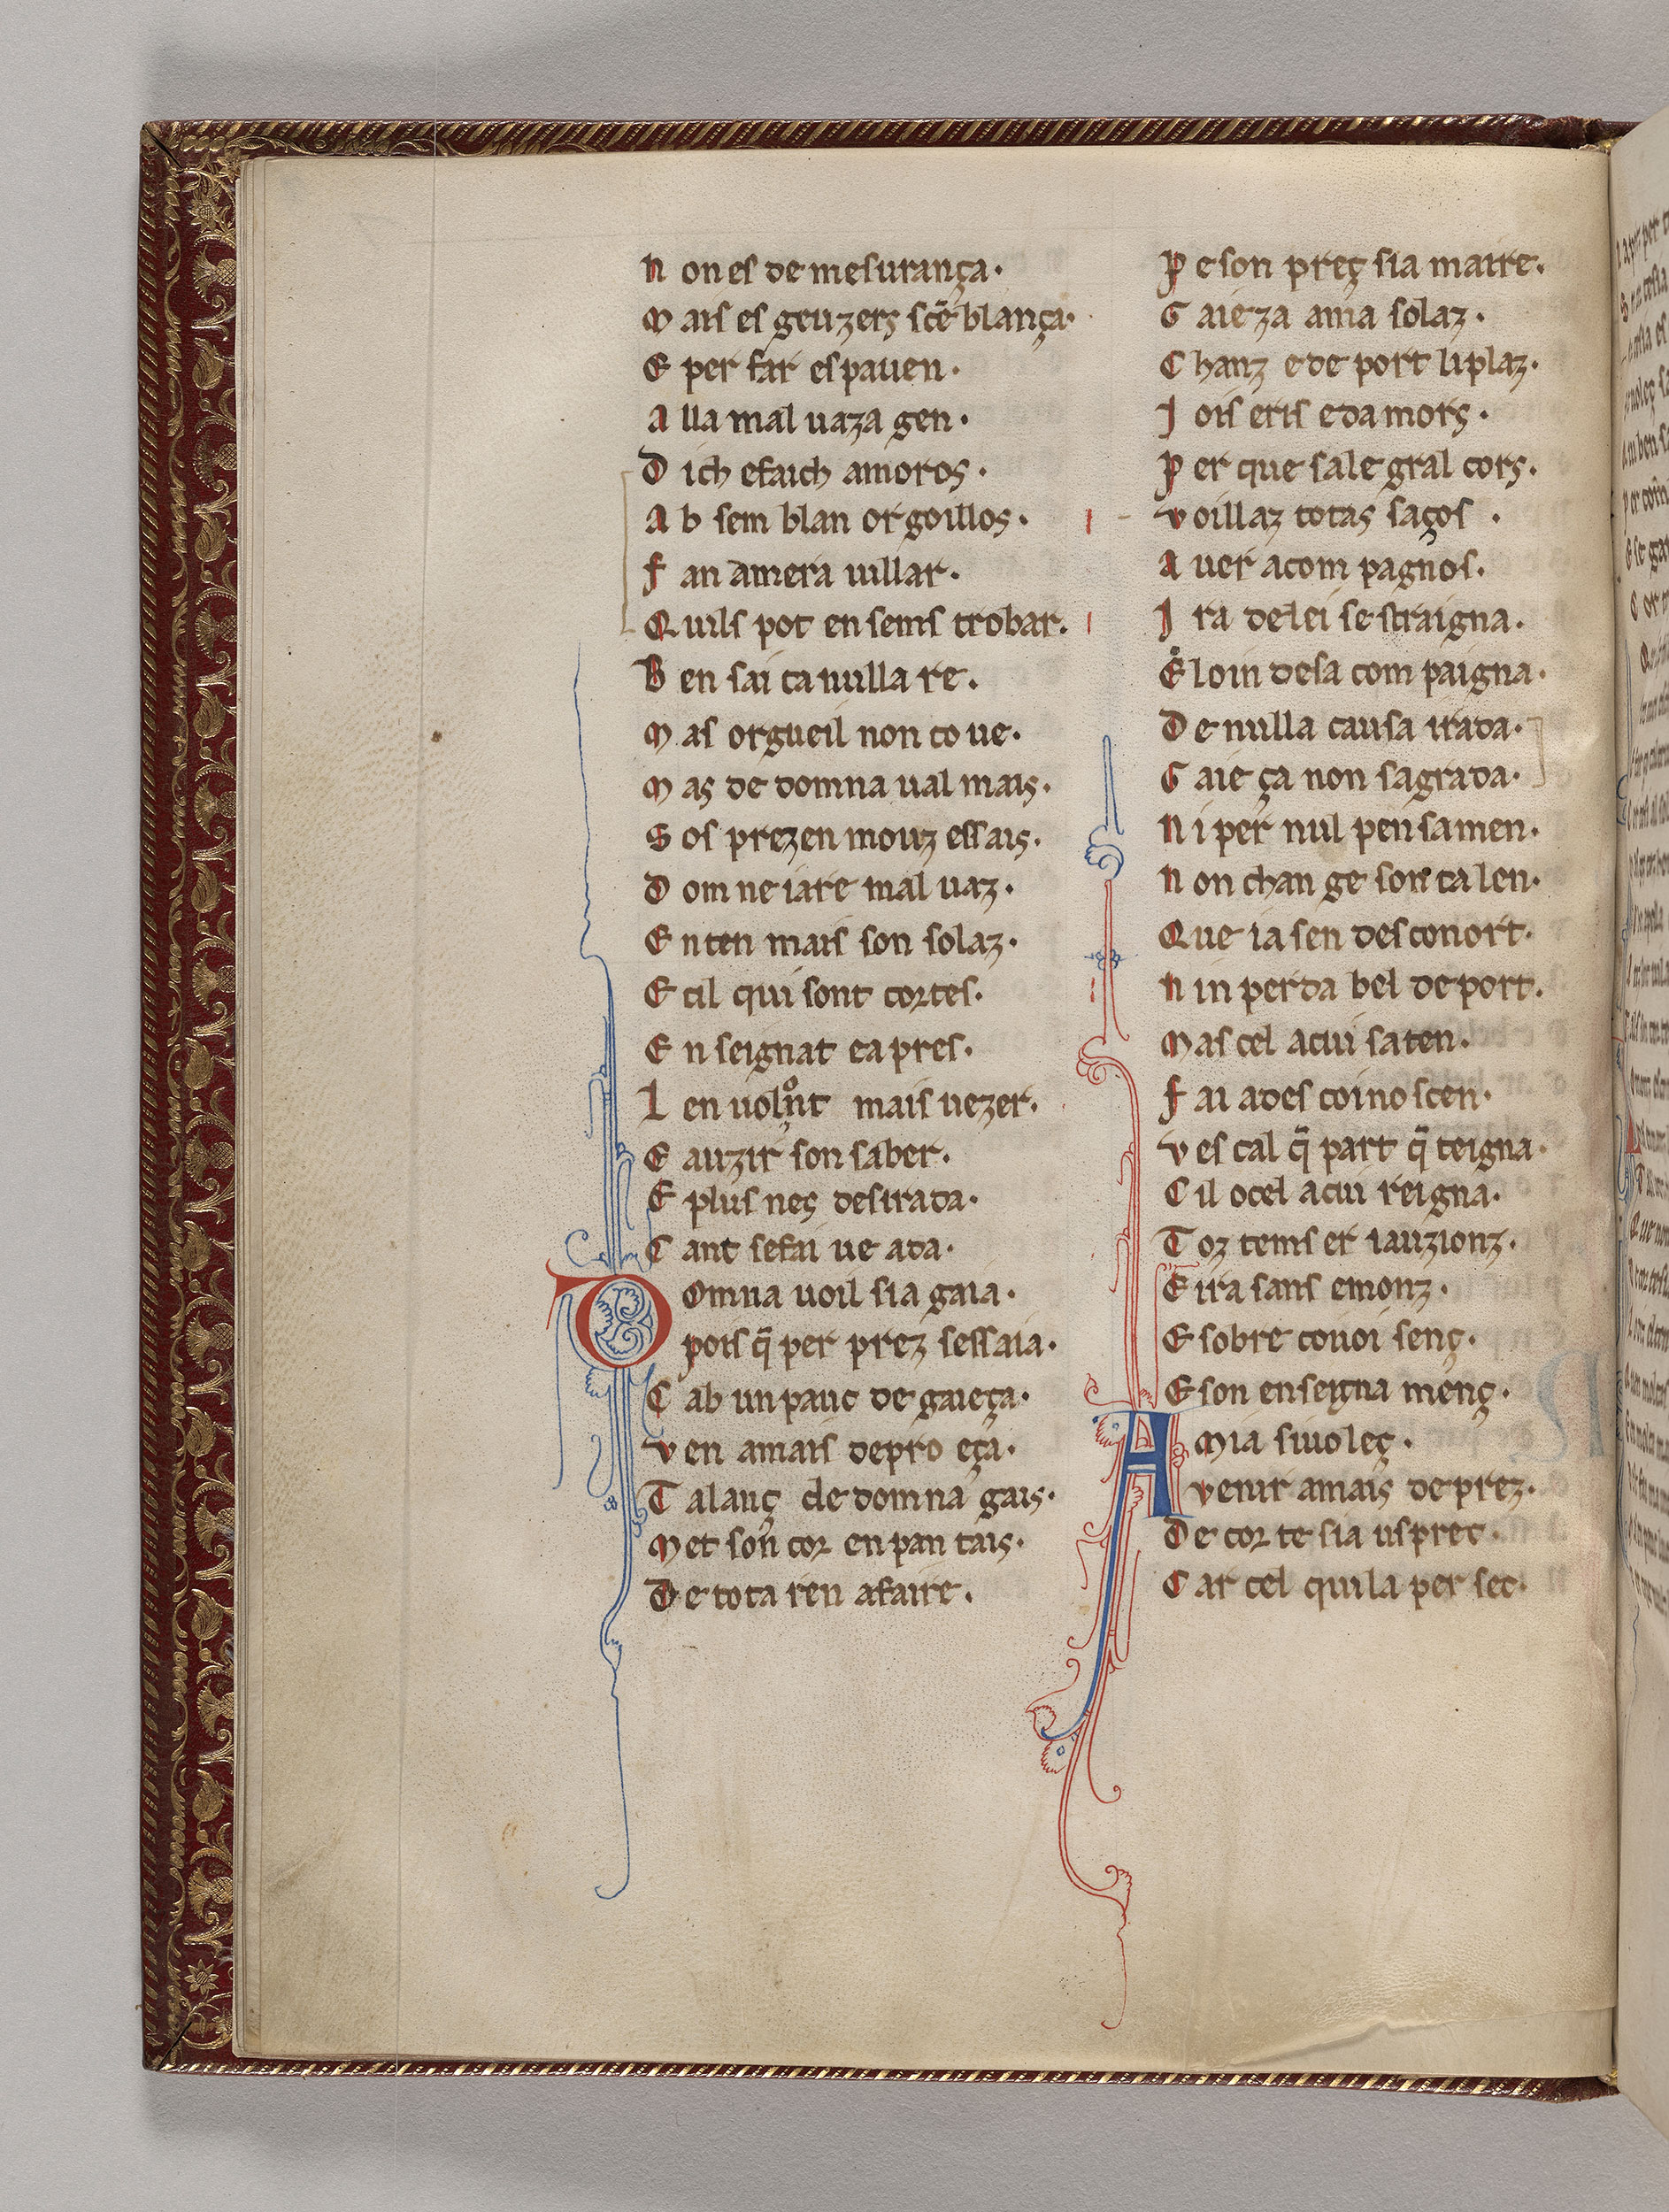 N on es de mesurança·
M ais es geuzers scē blança·
E per far espauen·
A lla mal uaza gen·
D ich efaich amoros·
A b sem blan orgoillos·
F an amera uillar·
Q uils pot en sems trobar·
B en sai ca nulla re·
M as orgueil non co ue·
M as de domna ual mais·
S os prezen mouz essais·
D om ne iare mal uaz·
E nten mais son solaz·
E cil qui sont cortes·
E n seignat ea pres·
L en uolont mais uezer·
E auzir son saber·
E plus nes desirada·
C ant sefai ue ada·
D omna uoil sia gaia·
pois q̄ per prez sessaia·
C ab un pauc de gaieça·
V en amais depro eça·
T alanç de domna gais·
M et son cor en pan tais·
D e tota ren afaire·
P e son preç sia maire·
G aieza ama solaz·
C hanz e de port li plaz·
J ois eris eda mors·
P er que sa le gral cors·
V oillaz totas saços·
A uer acom pagnos·
I ra de lei se straigna·
E loin desa com paigna·
D e nulla causa irada·
G aie ça non sagrada·
N i per nul pen samen·
N on chan ge son ta len·
Q ue ia sen des conort·
N in perda bel de port·
M as cel acui saten·
F ai ades coino scen·
V es cal q̄ part q̄ teigna·
C il ocel acui reigna·
T oz tems er iauzionz·
E ira sans emonz·
E sobre conoi sens·
E son enseigna mens·
A Mia siuoleç·
venir amais de prez·
D e cor te sia us prec·
C ar cel qui la per sec·